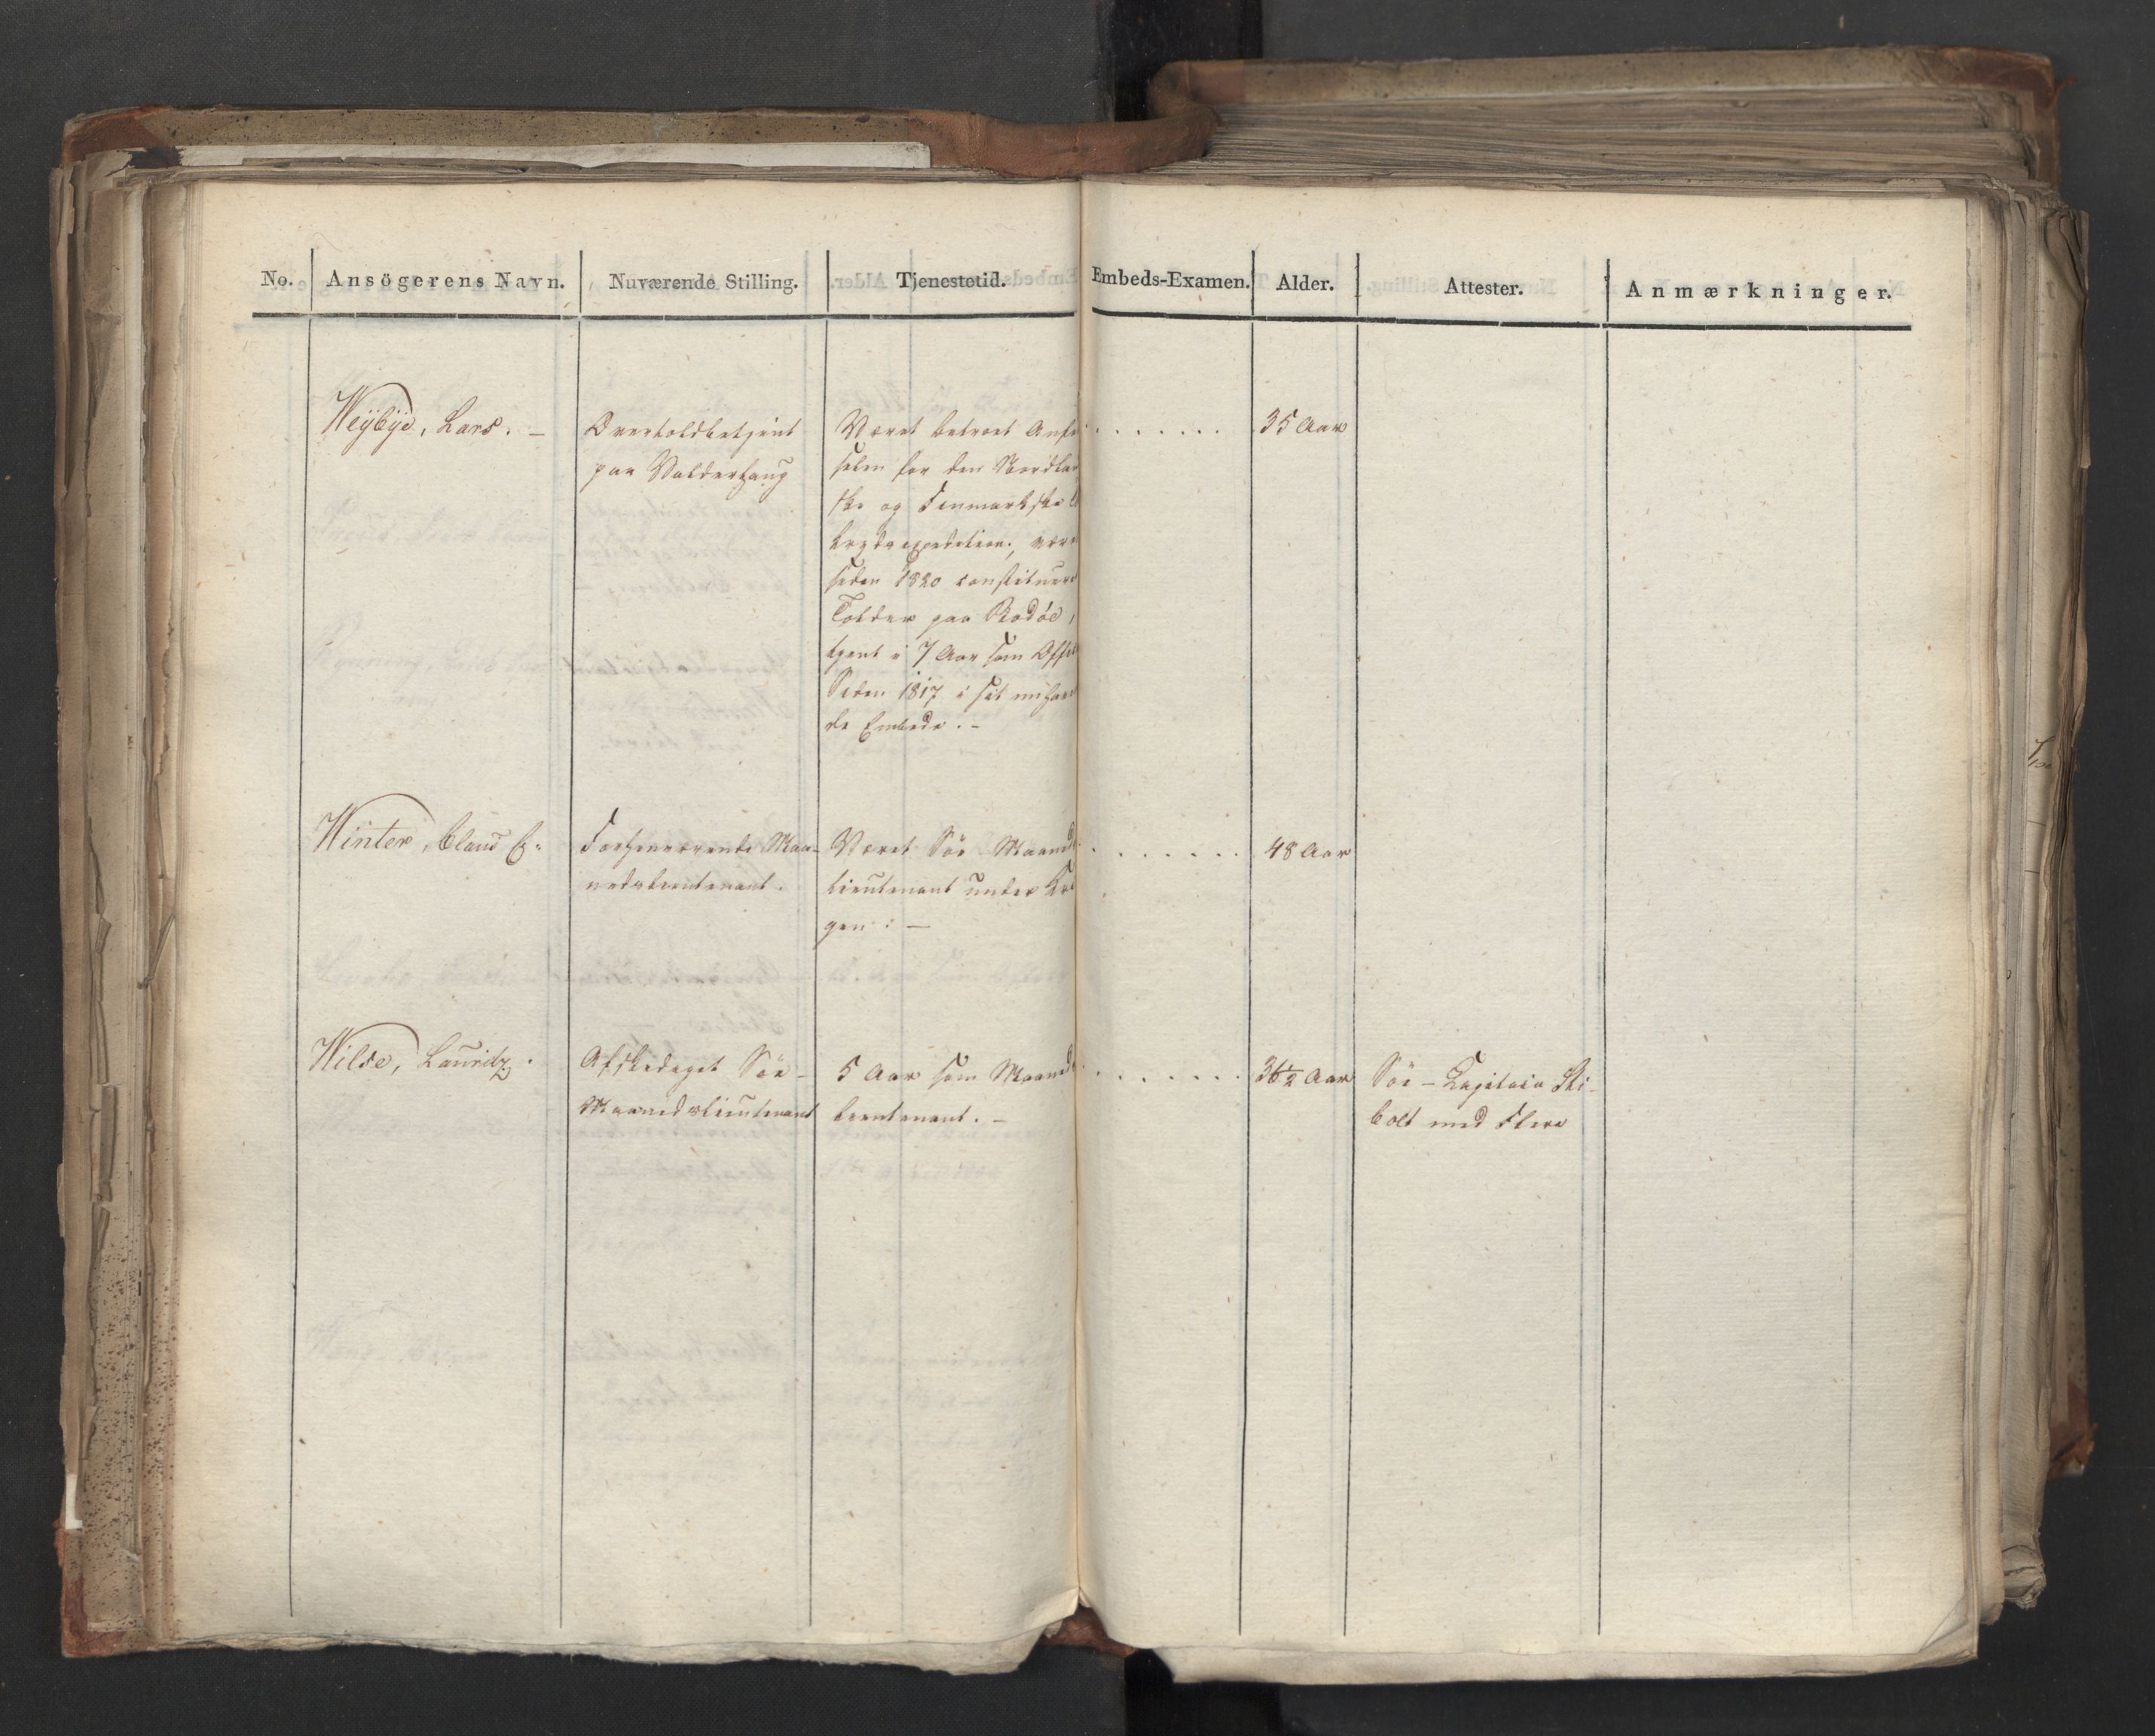 No. Ansögerens Navn. Nuværende Stilling. Tjenestetid. Embeds-Examen. Alder. Attester. Anmærkninger.
Weÿbÿe, Lars. –
Overtoldbetjent
paa Valderhaug
Været betroet Anfø
selen for den Nordlan
ske og Finmarkske
bryds expedition., være
siden 1820 constitueret
Tolder paa Bodöe,
tjent i 7 Aar som Offic
Siden 1817 i sit nuhave
de Embede. –
. . . . . . .
35 Aar
Winter, Claus E.
Forhenværende Maa-
nedslieutenant.
Været Söe Maaneds
lieutenant under Kri
gen. –
. . . . . . .
48 Aar
Wilse, Lauridz.
Afskediget Söe-
Maanedslieutenant
5 Aar som Maaneds
lieutenant. –
. . . . . . .
36½ Aar
Söe-Capitain Sti-
bolt med Flere